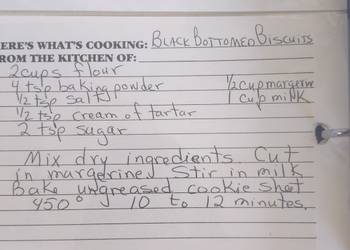 ERE'S WHAT'S COOKING: BLACK BOTTOMED BISCUITS
ROM THE KITCHEN OF:
2 cups flour
4 tsp baking powder 1/2 cup margerin
1/2 tsp salt 1 cup milk
1/2 tsp cream of tartar
2 tsp sugar
Mix dry ingredients. Cut
in margerine. Stir in milk
Bake ungreased cookie sheet
450° 10 to 12 minutes.